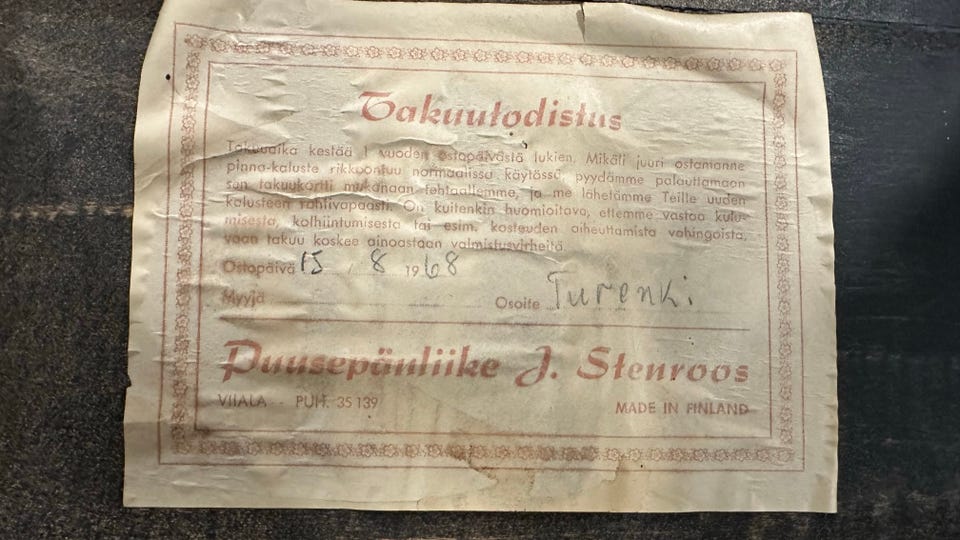 Takuutodistus
Takuuaika kestää 1 vuoden ostopäivästä lukien. Mikäli juuri ostamanne
pinna-kaluste rikkoontuu normaalissa käytössä, pyydämme palauttamaan
sen takuukortti mukanaan tehtaallemme, ja me lähetämme Teille uuden
kalusteen rahtivapaasti. On kuitenkin huomioitava, ettemme vastaa kulu-
misesta, kolhiintumisesta tai esim. kosteuden aiheuttamista vahingoista,
vaan takuu koskee ainoastaan valmistusvirheitä.
Ostopäivä 15 / 8 1968
Myyjä Osoite Turenki
Puusepänliike J. Stenroos
VIIALA - PUH. 35 139 MADE IN FINLAND